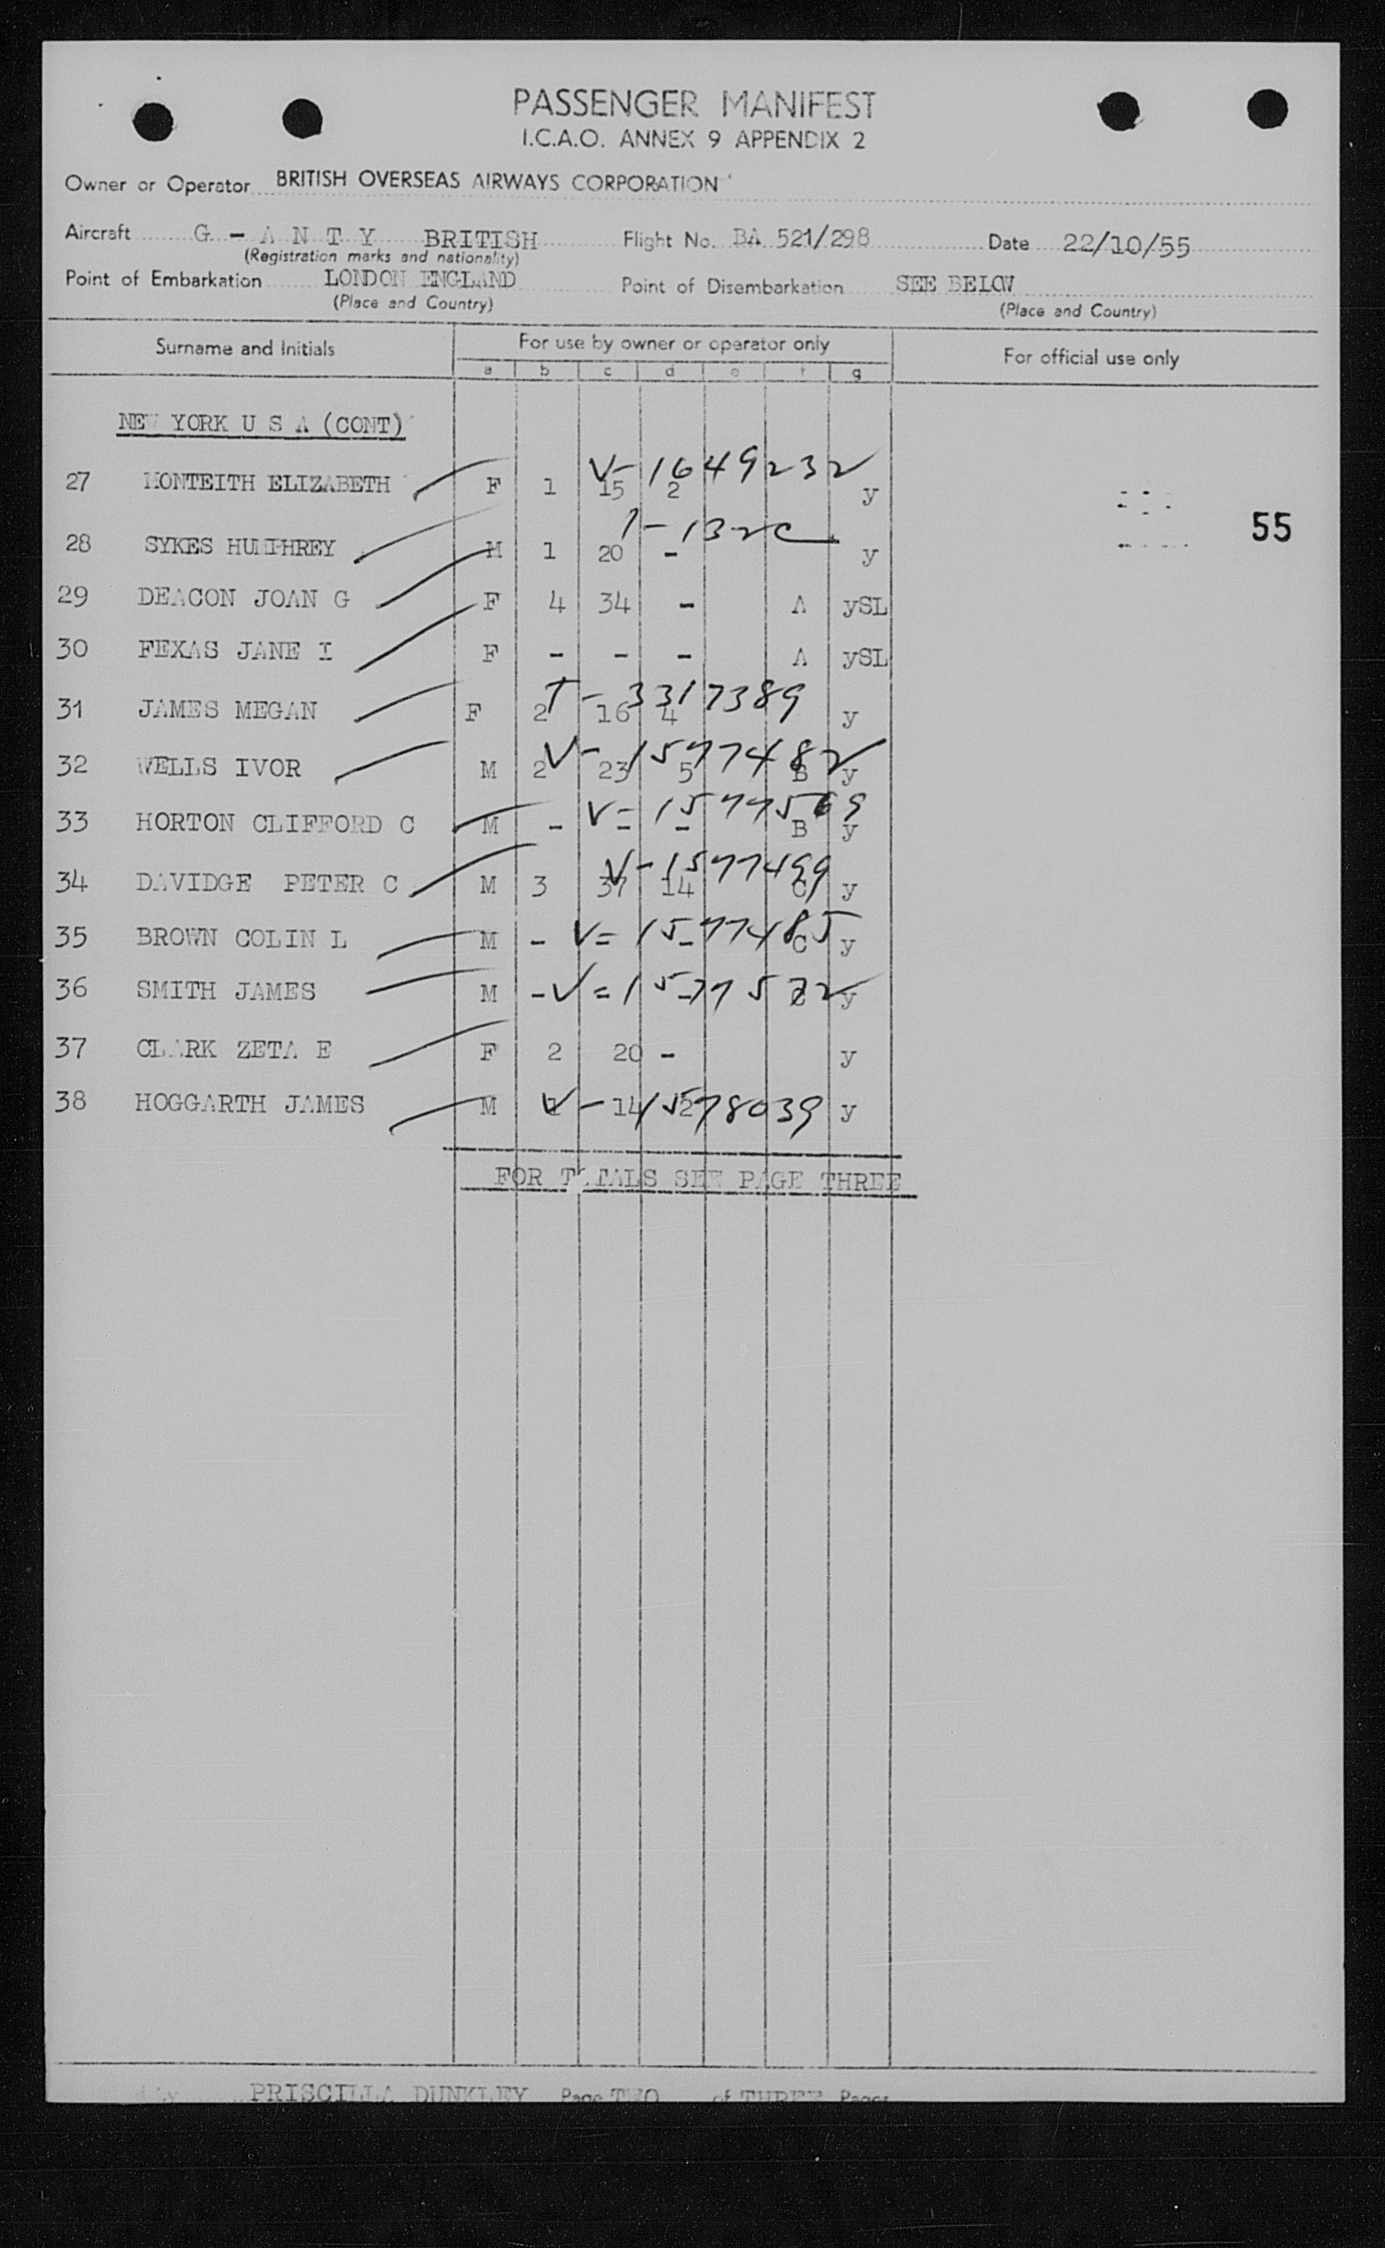 PASSENGER MANIFEST
I.C.A.O. ANNEX 9 APPENDIX 2
Owner or Operator BRITISH OVERSEAS AIRWAYS CORPORATION
Aircraft G - A N T Y BRITISH Flight No. BA 521/298 Date 22/10/55
(Registration marks and nationality)
Point of Embarkation LONDON ENGLAND Point of Disembarkation SEE BELOW
(Place and Country) (Place and Country)
Surname and Initials For use by owner or operator only For official use only
a b c d e f g
NEW YORK U S A (CONT)
V-1649232
27 MONTEITH ELIZABETH F 1 15 2 y
55
28 SYKES HUMPHREY M 1 20 - y
29 DEACON JOAN G F 4 34 - A ySL
30 FEXAS JANE I F - - - A ySL
T-3317389
31 JAMES MEGAN F 2 16 4 y
V-1577482
32 WELLS IVOR M 2 23 5 B y
V-1577569
33 HORTON CLIFFORD C M - - - B y
V-1577499
34 DAVIDGE PETER C M 3 37 14 C y
V-1577485
35 BROWN COLIN L M - - - C y
V-1577572
36 SMITH JAMES M - - - C y
37 CLARK ZETA E F 2 20 - y
V-1578039
38 HOGGARTH JAMES M 1 14 2 y
FOR TOTALS SEE PAGE THREE
PRISCILLA DUNKLEY Page TWO of THREE Pages